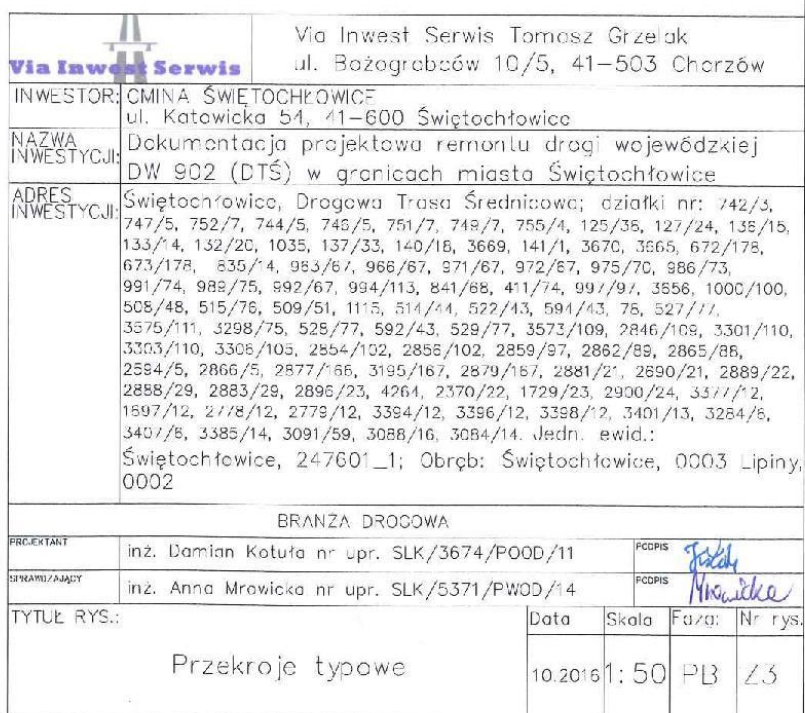 Via Inwest Serwis
Via Inwest Serwis Tomasz Grzelak
ul. Bożogrobców 10/5, 41-503 Chorzów
INWESTOR:
GMINA ŚWIĘTOCHŁOWICE
ul. Katowicka 54, 41-600 Świętochłowice
NAZWA INWESTYCJI:
Dokumentacja projektowa remontu drogi wojewódzkiej
DW 902 (DTŚ) w granicach miasta Świętochłowice
ADRES INWESTYCJI:
Świętochłowice, Drogowa Trasa Średnicowa; działki nr: 742/3,
747/5, 752/7, 744/5, 746/5, 751/7, 749/7, 755/4, 125/36, 127/24, 136/15,
133/14, 132/20, 1035, 137/33, 140/18, 3669, 141/1, 3670, 3665, 672/178,
673/178, 835/14, 963/67, 966/67, 971/67, 972/67, 975/70, 986/73,
991/74, 989/75, 992/67, 994/113, 841/68, 411/74, 997/97, 3656, 1000/100,
508/48, 515/76, 509/51, 1115, 514/44, 522/43, 594/43, 76, 527/77,
3575/111, 3298/75, 528/77, 592/43, 529/77, 3573/109, 2846/109, 3301/110,
3303/110, 3306/105, 2854/102, 2856/102, 2859/97, 2862/89, 2865/88,
2594/5, 2866/5, 2877/166, 3195/167, 2879/167, 2881/21, 2690/21, 2889/22,
2888/29, 2883/29, 2896/23, 4264, 2370/22, 1729/23, 2900/24, 3377/12,
1697/12, 2778/12, 2779/12, 3394/12, 3396/12, 3398/12, 3401/13, 3284/6,
3407/6, 3385/14, 3091/59, 3088/16, 3084/14. Jedn. ewid.:
Świętochłowice, 247601_1; Obręb: Świętochłowice, 0003 Lipiny,
0002
BRANŻA DROGOWA
PROJEKTANT
inż. Damian Kotuła nr upr. SLK/3674/POOD/11
PODPIS
SPRAWDZAJĄCY
inż. Anna Mrawicka nr upr. SLK/5371/PWOD/14
PODPIS
Mrawicka
TYTUŁ RYS.:
Data Skala Faza: Nr rys.
Przekroje typowe
10.2016 1:50 PB